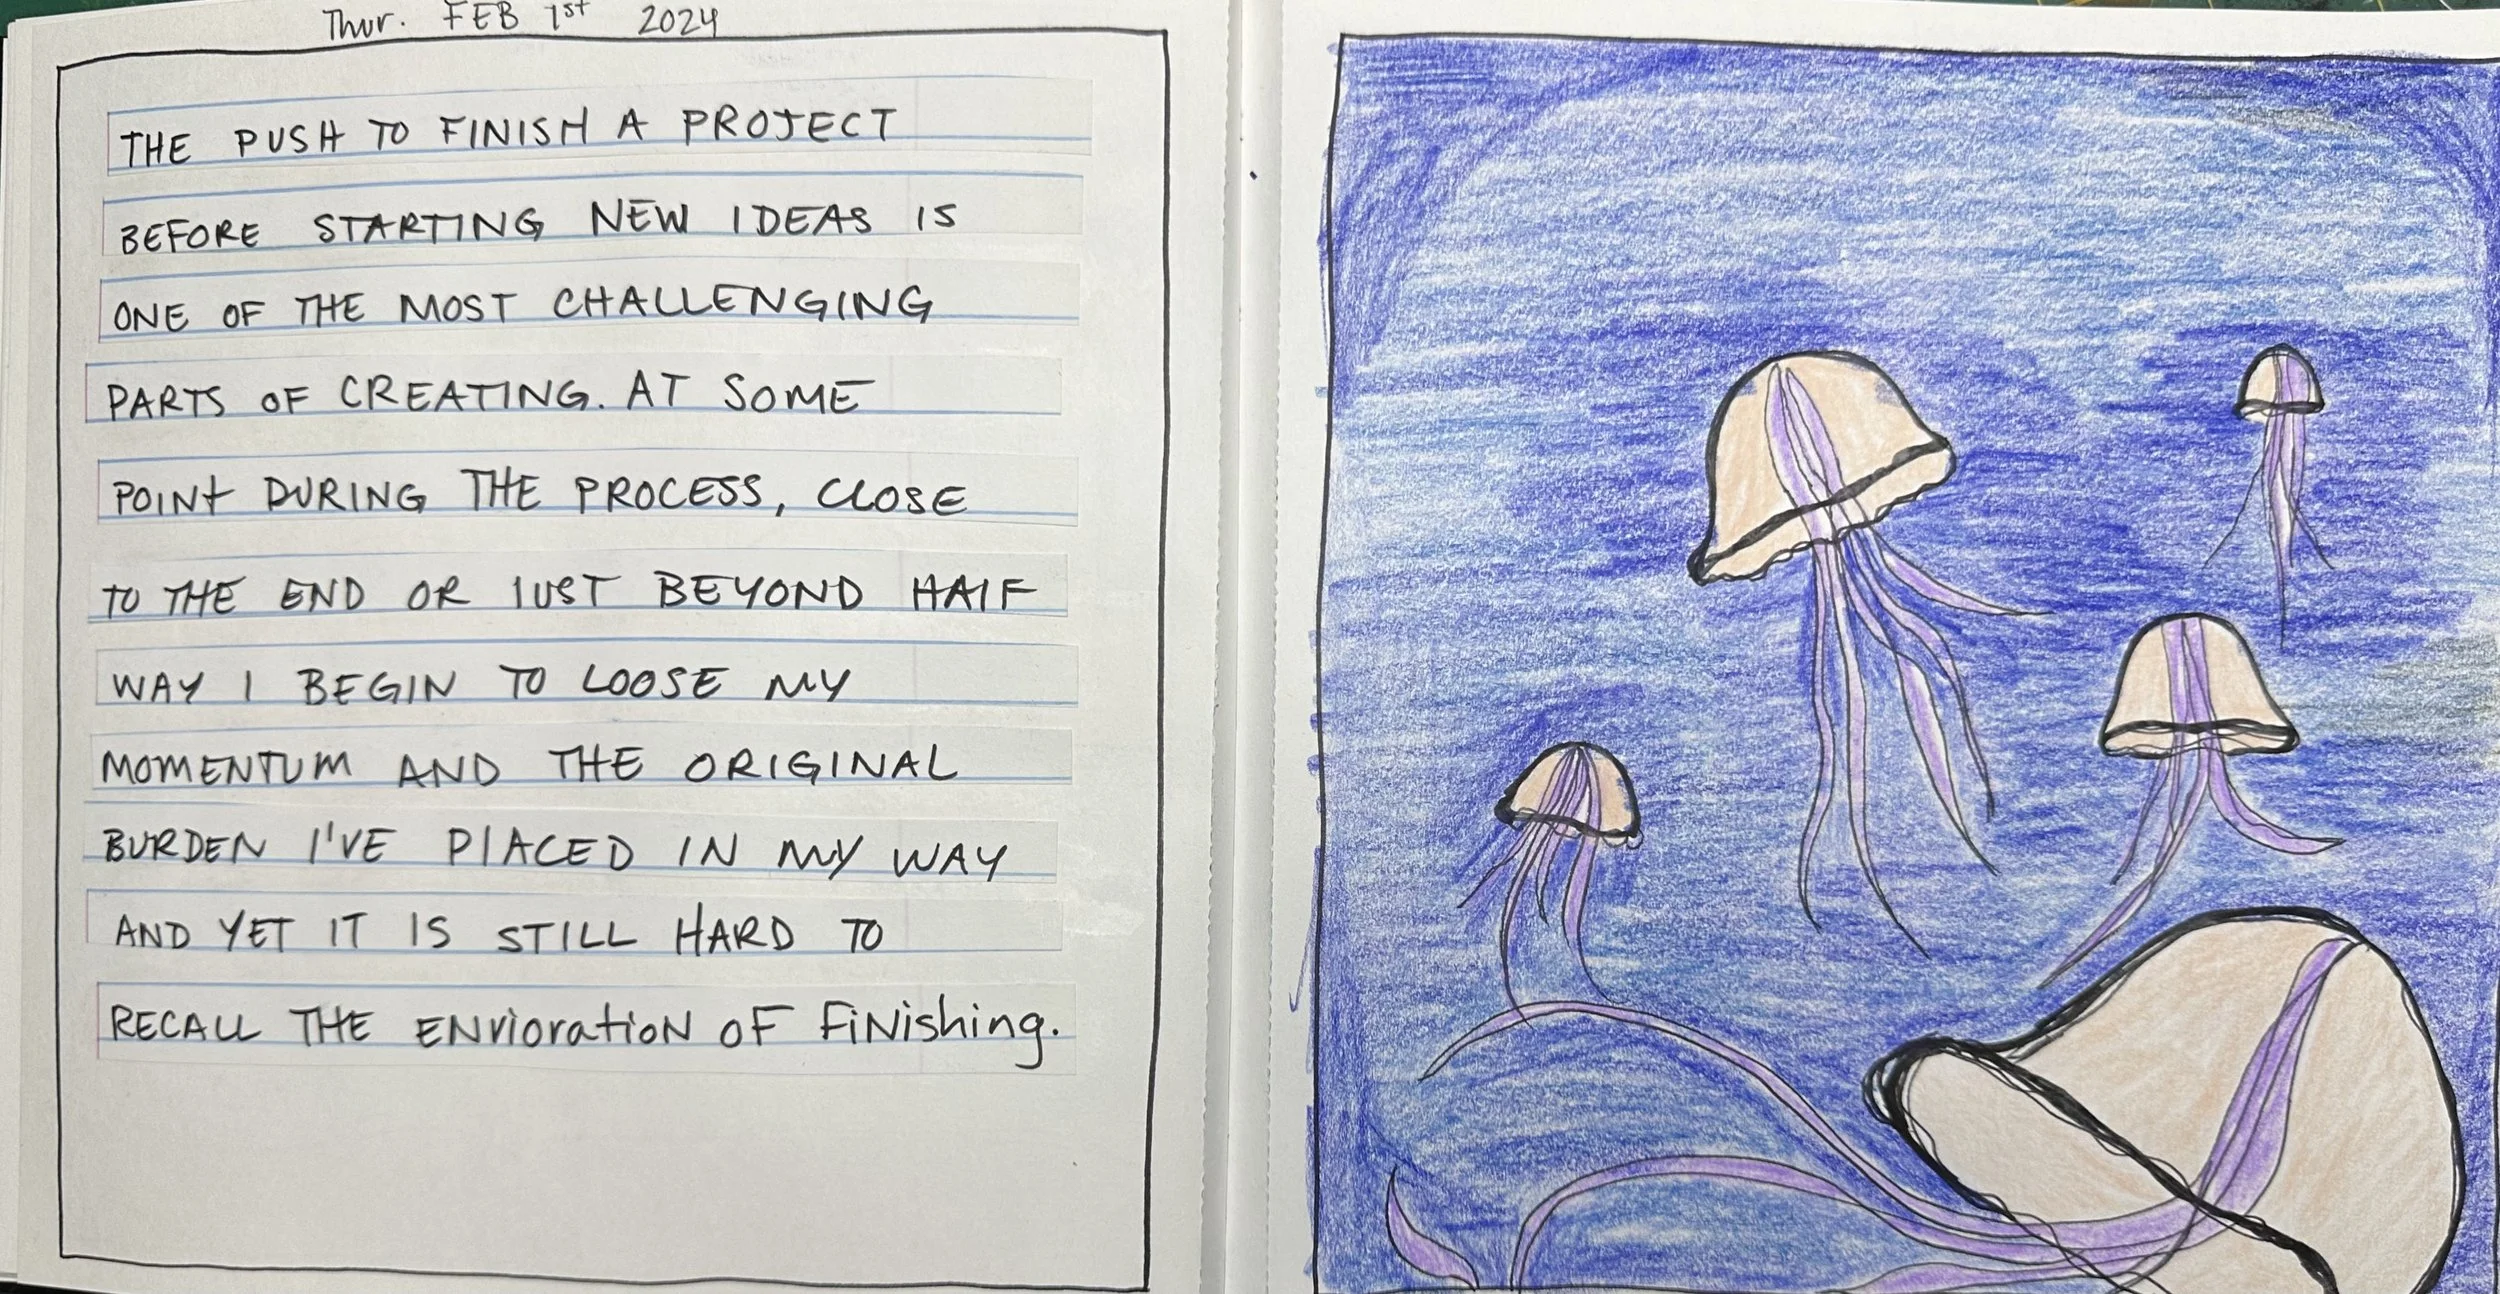 Thur. FEB 1st 2024
THE PUSH TO FINISH A PROJECT
BEFORE STARTING NEW IDEAS IS
ONE OF THE MOST CHALLENGING
PARTS OF CREATING. AT SOME
POINT DURING THE PROCESS, CLOSE
TO THE END OR JUST BEYOND HALF
WAY I BEGIN TO LOOSE MY
MOMENTUM AND THE ORIGINAL
BURDEN I'VE PLACED IN MY WAY
AND YET IT IS STILL HARD TO
RECALL THE ENVIORATION OF FINISHING.